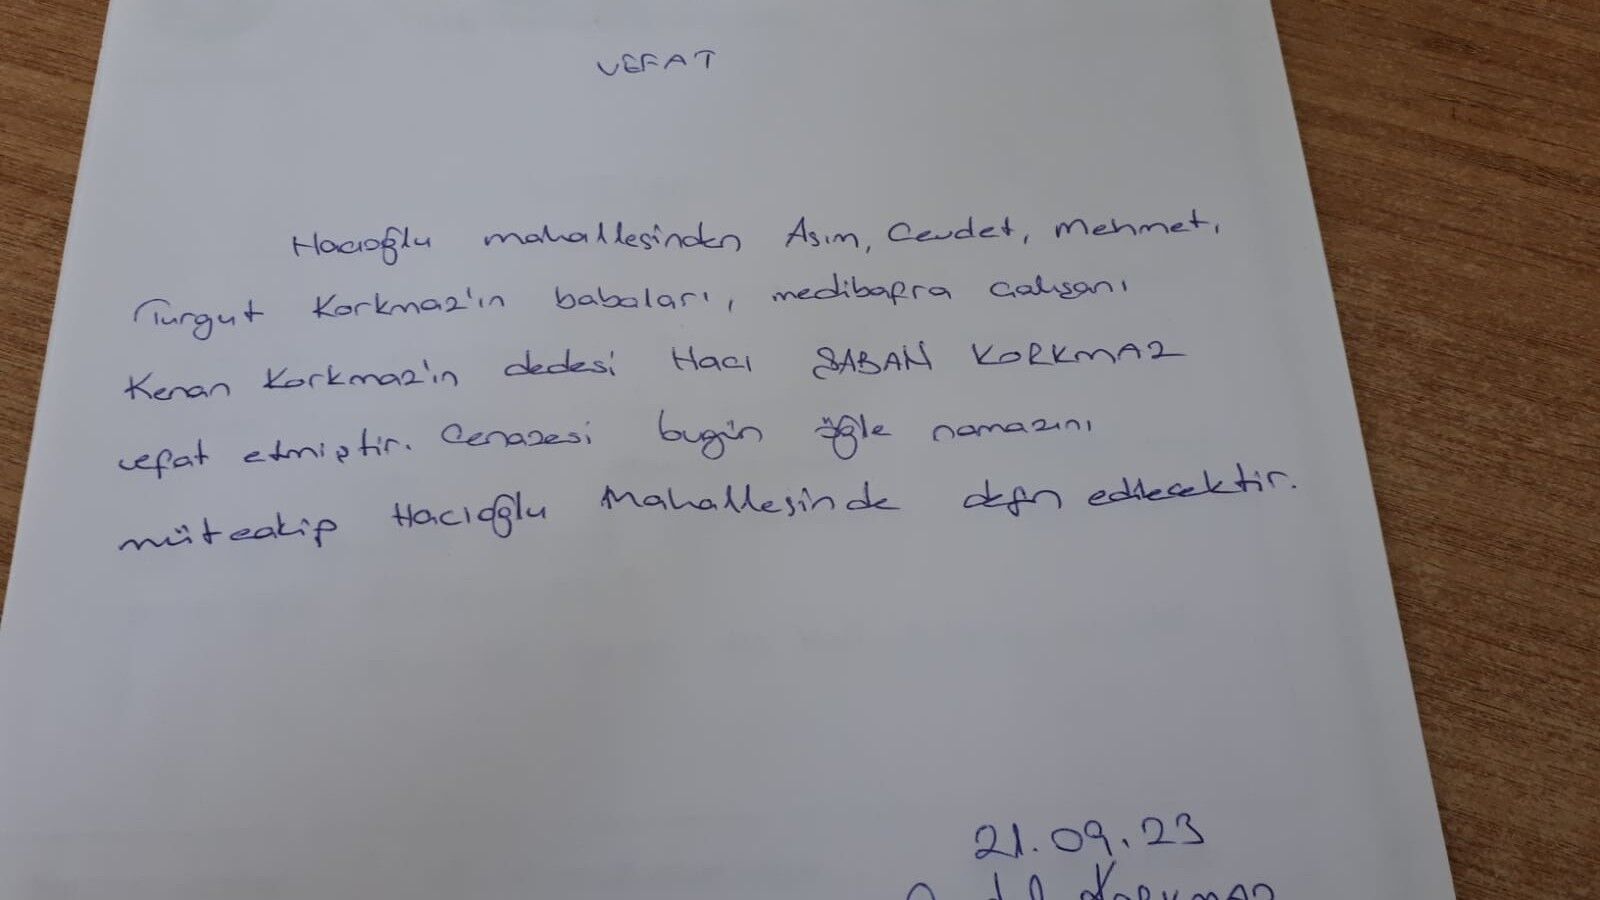 VEFAT
Hacıoğlu mahallesinden Asım, Cevdet, Mehmet,
Turgut Korkmaz'ın babaları, medibafra çalışanı
Kenan Korkmaz'ın dedesi Hacı ŞABAN KORKMAZ
vefat etmiştir. Cenazesi bugün öğle namazını
müteakip Hacıoğlu Mahallesinde defin edilecektir.
21.09.23
KORKMAZ